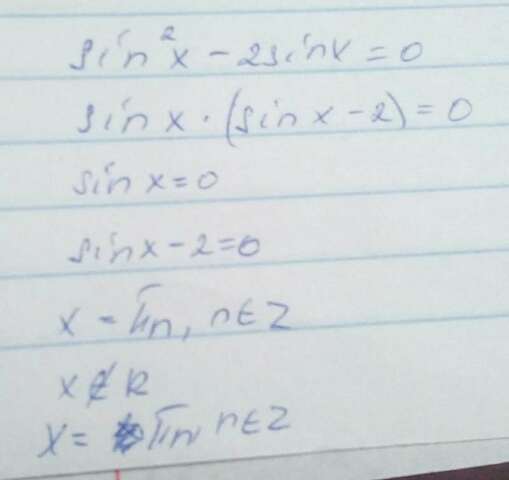 sin²x - 2sinx = 0
sin x · (sin x - 2) = 0
sin x = 0
sin x - 2 = 0
x = πn, n∈Z
x ∉ R
x = πn, n∈Z